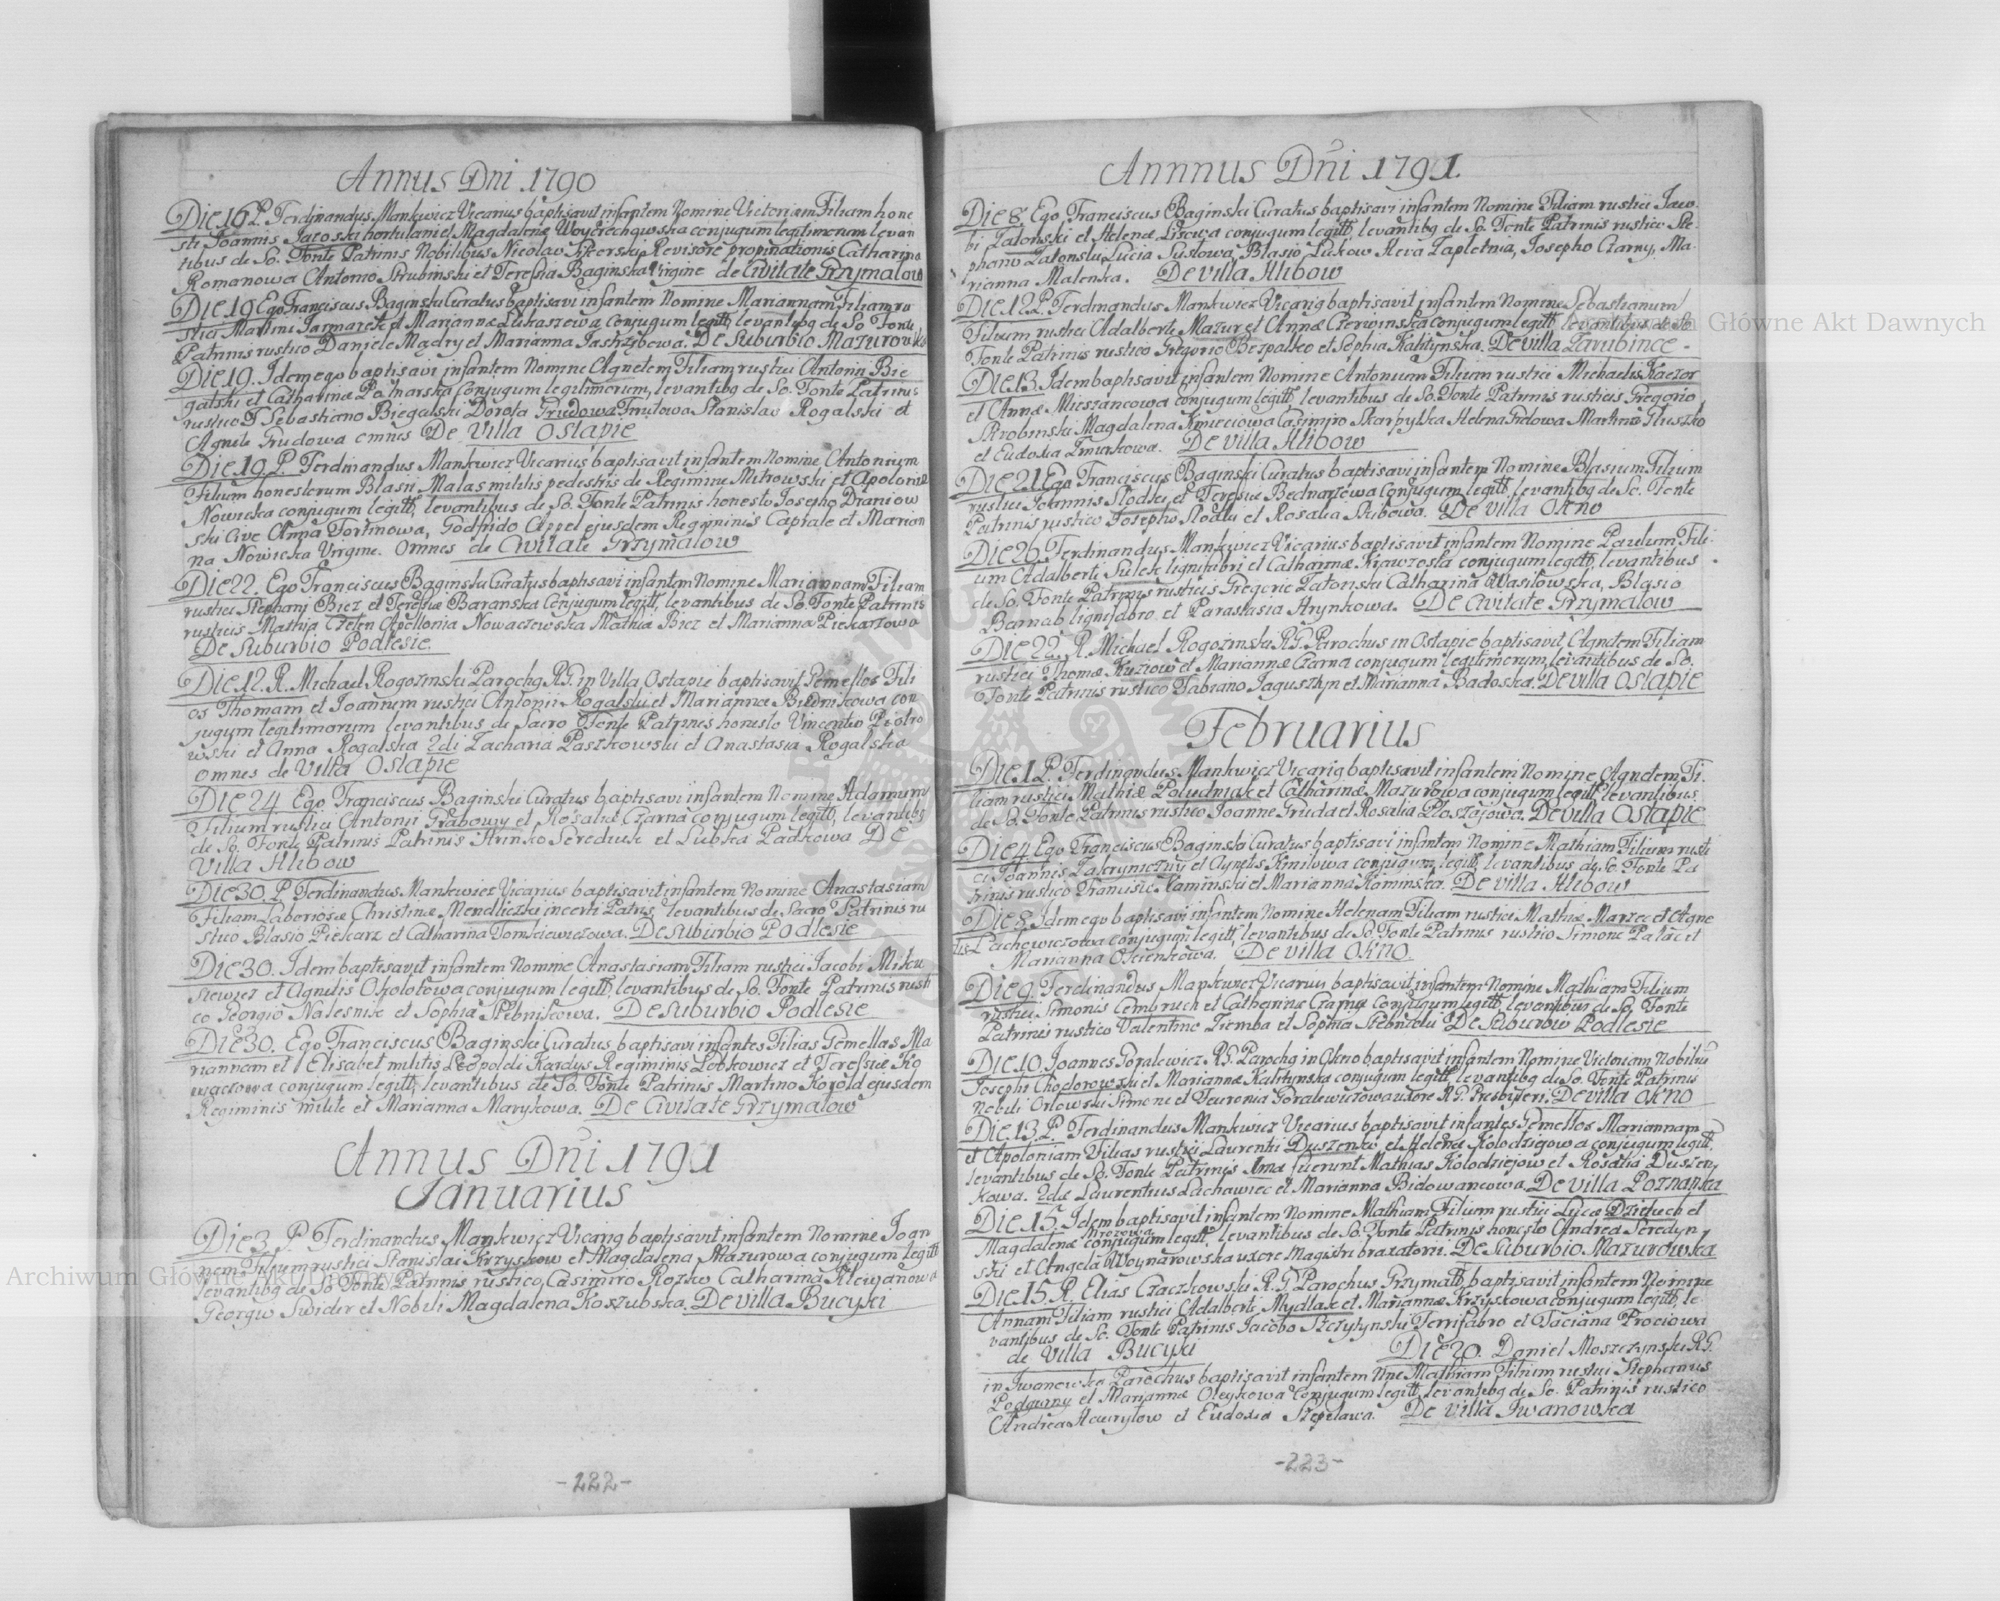 Annus Dni 1790
Die 16 P. Ferdinandus Mankwicz Vicarius baptisavit infantem Nomine Victoriam Filiam hone
sti Joannis Jacoski hortulani et Magdalenæ conjugum legitimorum levan
tibus de So. Fonte Patrinis Nobilibus Nicolao Revisore propinationis Catharina
Romanowa Antonio Skrubinski et Teressia Baginska Virgine de Civitate Grzymalow
Die 19 Ego Franciscus Baginski Curatus baptisavi infantem Nomine Mariannam Filiam ru
stici Martini Jarmarek et Mariannæ Lukaszewa conjugum legittt, levantibg de So Fonte
Patrinis rustico Daniele Mądry et Marianna Jastrzębowa. De Suburbio Mazurowka
Die 19. Idem ego baptisavi infantem Nomine Agnetem Filiam rustici Antonii Bie
galski et Catharinæ Poznarska Conjugum legitimorum, levantibg de So. Fonte Patrinis
rustico Sebastiano Biegalski Dorota Grudowa Stanislao Rogalski et
Agnete Grudowa omnes De Villa Ostapie
Die 19 P. Ferdinandus Mankwicz Vicarius baptisavit infantem Nomine Antonium
Filium honestorum Blasii Malas militis pedestris de Regimine Mitrowski et Apoloniæ
Nowicka conjugum legittt, levantibus de So. Fonte Patrinis honesto Josepho Draniow
ski Cive Anna Fortunowa, Godfrido Appel ejusdem Regiminis Caprale et Marian
na Nowicka Virgine. Omnes de Civitate Grzymalow
Die 22. Ego Franciscus Baginski Curatus baptisavi infantem Nomine Mariannam Filiam
rustici Stephani Biez et Teresiæ Baranska Conjugum legittt, levantibus de So. Fonte Patrinis
rusticis Mathia Czeten Apollonia Nowaczewska Mathia Biez et Marianna Piekarzowa
De Suburbio Podlesie.
Die 12. R. Michael Rogozinski Parochg RG. in Villa Ostapie baptisavit Gemellos Fili
os Thomam et Joannem rustici Antonii Rogalski et Marianna Budnikowa con
jugum legitimorum levantibus de Sacro Fonte Patrinis honesto Vincentio Piotro
wski et Anna Rogalska 2di Zacharia Paszkowski et Anastasia Rogalska
omnes de Villa Ostapie
Die 24 Ego Franciscus Baginski Curatus baptisavi infantem Nomine Adamum
Filium rustici Antonii Grabowy et Rosaliæ Czarna conjugum legittt, levantibg
de So. Fonte Patrinis Patrinis Hrinko Serediuk et Lubka Padkowa De
Villa Hlibow
Die 30. P. Ferdinandus Mankwicz Vicarius baptisavit infantem Nomine Anastasiam
Filiam Laboriosæ Christinæ Mendliczki incerti Patris, levantibus de Sacro Patrinis ru
stico Blasio Piekarz et Catharina Tomkiewiczowa. De Suburbio Podlesie
Die 30. Idem baptisavit infantem Nomine Anastasiam Filiam rustici Jacobi Mitku
siewicz et Agnetis Okolotowa conjugum legittt, levantibus de So. Fonte Patrinis rusti
co Georgio Nalesnik et Sophia Stebnikowa. De Suburbio Podlesie
Die 30. Ego Franciscus Baginski Curatus baptisavi infantes Filias Gemellas Ma
riannam et Elisabet militis Leopoldi Kardys Regiminis Lobkowicz et Teressiæ Ko
waczowa conjugum legittt, levantibus de So. Fonte Patrinis Martino Korold ejusdem
Regiminis milite et Marianna Marykowa. De Civitate Grzymalow
Annus Dni 1791
Januarius
Die 3 P. Ferdinandus Mankwicz Vicarig baptisavit infantem Nomine Joan
nem Filium rustici Stanislai Krzyskow et Magdalena Mazurowa conjugum legittt
levantibg de So Fonte Patrinis rustico Casimiro Rozko Catharina
Georgio Swider et Nobili Magdalena Koszubska. De Villa Bucyki
-222-
Annnus Dni 1791.
Die 8 Ego Franciscus Baginski Curatus baptisavi infantem Nomine Filiam rustici Jaco
bi Zatonski et Helenæ Lisowa conjugum legittt, levantibg de So. Fonte Patrinis rustico Ste
phano Zatonski Lucia Suslowa, Blasio Lukow Heva Tapletnia, Josepho Czarny, Ma
rianna Malenka. De Villa Hlibow
Die 12 P. Ferdinandus Mankwicz Vicarig baptisavit infantem Nomine Sebastianum
Filium rustici Adalberti Mazur et Annæ Czerwinska conjugum legittt, levantibus de So.
Fonte Patrinis rustico Gregorio Bezpalko et Sophia Kalitynska. De Villa Zarubince
Die 13. Idem baptisavit infantem Nomine Antonium Filium rustici Michaelis Kaczor
et Annæ Mieszancowa conjugum legittt, levantibus de So. Fonte Patrinis rusticis Gregorio
Skrobinski Magdalena Kmieciowa Casimiro Skarpylka Helena Fudowa Martino Gluszko
et Eudoxia Zmurkowa. De Villa Hlibow
Die 21 Ego Franciscus Baginski Curatus baptisavi infantem Nomine Blasium Filium
rustici Joannis Slodki et Teresiæ Bednarzowa Conjugum legittt, levantibg de So. Fonte
Patrinis rustico Josepho Slodki et Rosalia Skibowa. De Villa Okno
Die 26 Ferdinandus Mankwicz Vicarius baptisavit infantem Nomine Paulum Fili-
um Adalberti Sulek lignifabri et Catharinæ Krawzosla conjugum legittt, levantibus
de So. Fonte Patrinis rusticis Gregorio Zatonski Catharina Wasilowska, Blasio
Barnab lignifabro et Parastasia Hrynkowa. De Civitate Grzymalow
Die 22. R. Michael Rogozinski RG. Parochus in Ostapie baptisavit Agnetem Filiam
rustici Thomæ Kuziow et Mariannæ Czarna conjugum legitimorum, levantibus de So.
Fonte Patrinis rustico Fabiano Jaguszkyn et Marianna Badoska. De Villa Ostapie
Februarius
Die 1 P. Ferdinandus Mankwicz Vicarig baptisavit infantem Nomine Agnetem Fi-
liam rustici Mathiæ Poludniak et Catharinæ Mazurowa conjugum legittt, levantibus
de So. Fonte Patrinis rustico Joanne Gruda et Rosalia Ploszajowa. De Villa Ostapie
Die 4 Ego Franciscus Baginski Curatus baptisavi infantem Nomine Mathiam Filium rusti
ci Joannis Zakrynieczny et Agnetis Kinilowa conjugum legittt, levantibus de So Fonte Pa
trinis rustico Francisco Kaminski et Marianna Kaminska. De Villa Hlibow
Die 8 Idem ego baptisavi infantem Nomine Helenam Filiam rustici Mathiæ Marzec et Agne
tis Lachowiczowa conjugum legittt, levantibus de So. Fonte Patrinis rustico Simone Palac et
Marianna Okienkowa. De Villa Okno.
Die 9. Ferdinandus Mankwicz Vicarius baptisavit infantem Nomine Mathiam Filium
rustici Simonis Cembruch et Catherinæ Czarna Conjugum legittt, levantibus de So Fonte
Patrinis rustico Valentino Ziemba et Sophia Stebnicki De Suburbio Podlesie
Die 10. Joannes Goralewicz RG. Parochg in Okno baptisavit infantem Nomine Victoriam Nobiliu
Josephi Chodorowski et Mariannæ Kalitynska conjugum legittt, levantibg de So. Fonte Patrinis
Nobili Orlowski Simone et Veuronia Goralewiczowa uxore RG. Presbyteri. De Villa Okno
Die 13. P. Ferdinandus Mankwicz Vicarius baptisavit infantes Gemellos Mariannam
et Apoloniam Filias rustici Laurentii Duszenko et Helenæ Kolodziejowa conjugum legittt,
levantibus de So. Fonte Patrinis 1ma fuerunt Mathias Kolodziejow et Rosalia Duszen
kowa. 2da Laurentius Lachawiec et Marianna Bidowancowa. De Villa Poznanka
Die 15. Idem baptisavit infantem Nomine Mathiam Filium rustici Lucæ Dzieduch et
Magdalenæ Mrozowa conjugum legittt, levantibus de So. Fonte Patrinis honesto Andrea Seredyn
ski et Angela Woynarowska uxore Magistri braxatorii. De Suburbio Mazurowka
Die 15. R. Elias Czaczkowski R.G. Parochus Grzymall. baptisavit infantem Nomine
Annam Filiam rustici Adalberti Mydlak et Mariannæ Krzyskowa Conjugum legittt, le-
vantibus de So. Fonte Patrinis Jacobo Szczytynski Ferrifabro et Taciana Prociowa
de Villa Bucyki Die 20. Daniel Moszczynski R.G.
in Iwanowka Parochus baptisavit infantem Nne Mathiam Filium rustici Stephanus
Podgurny et Mariannæ Oleykowa Conjugum legittt, levantibg de So. Patrinis rustico
Andrea Hawrylow et Eudoxia Szpetawa. De Villa Iwanowka
-223-
Archiwum Główne Akt Dawnych
Archiwum Główne Akt Dawnych